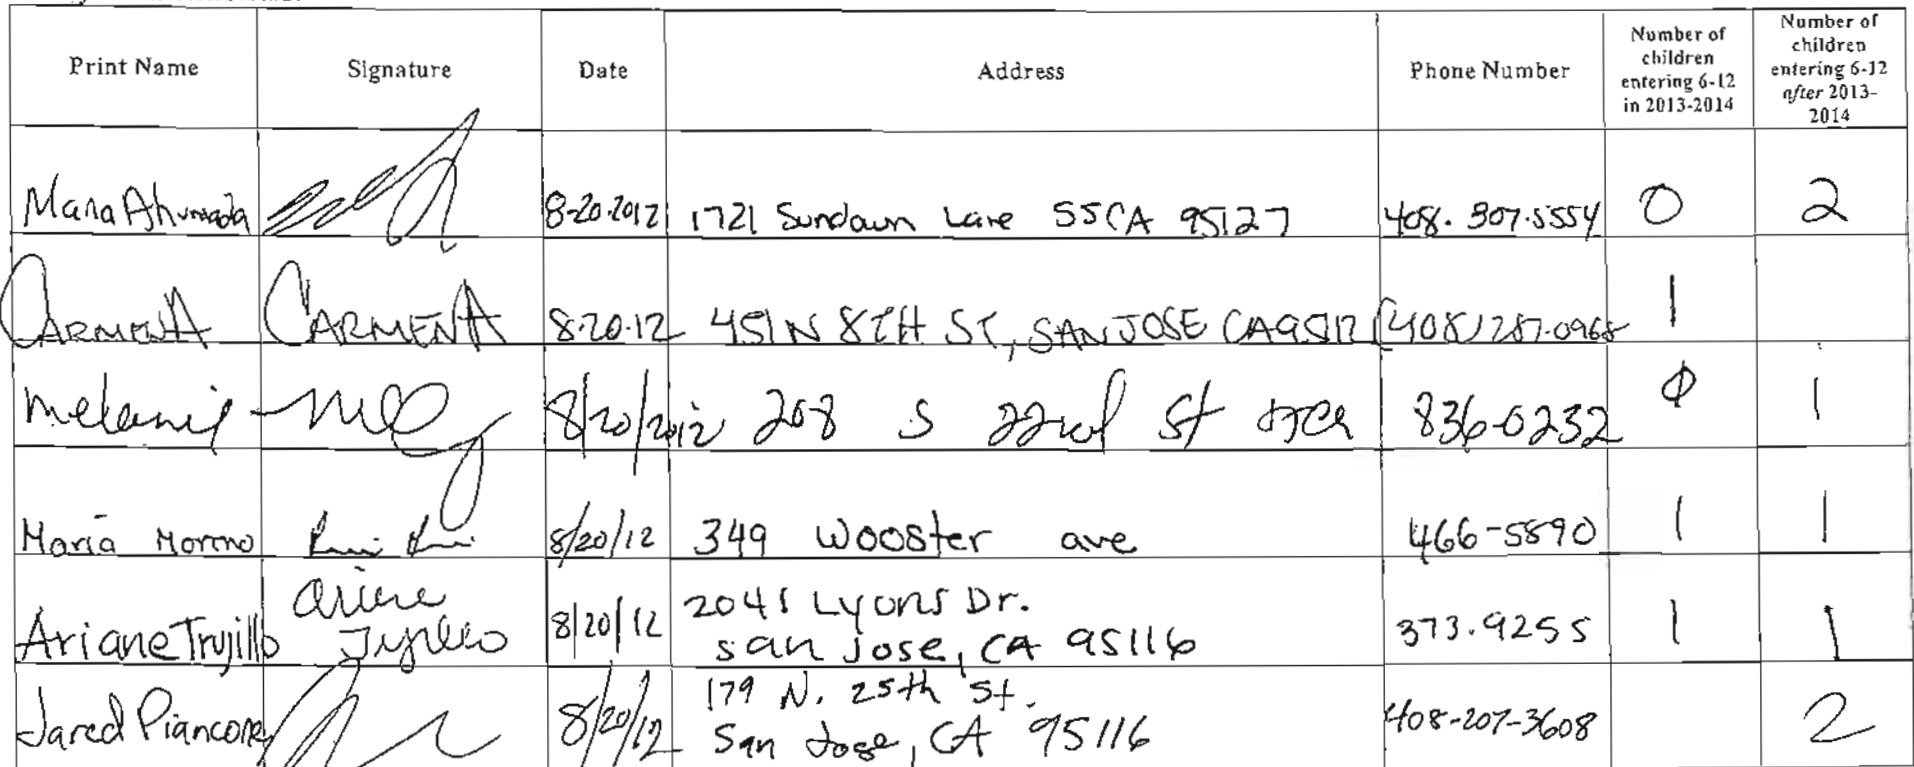 Print Name Signature Date Address Phone Number Number of children entering 6-12 in 2013-2014 Number of children entering 6-12 after 2013-2014
Maria Ahumada 8-20-2012 1721 Sundown Lane SJ CA 95127 408. 307.5554 0 2
CARMEN A CARMEN A 8.20.12 451 N 8TH ST, SAN JOSE CA (408) 287-0968 1
Melanie 8/20/2012 208 S 22nd St 836-0232 0 1
Maria Moreno 8/20/12 349 Wooster ave 466-5890 1 1
Ariane Trujillo Ariane Trujillo 8/20/12 2041 Lyons Dr.
San Jose, CA 95116 373.9255 1 1
Jared Piancone 8/20/12 179 N. 25th St.
San Jose, CA 95116 408-207-3608 2